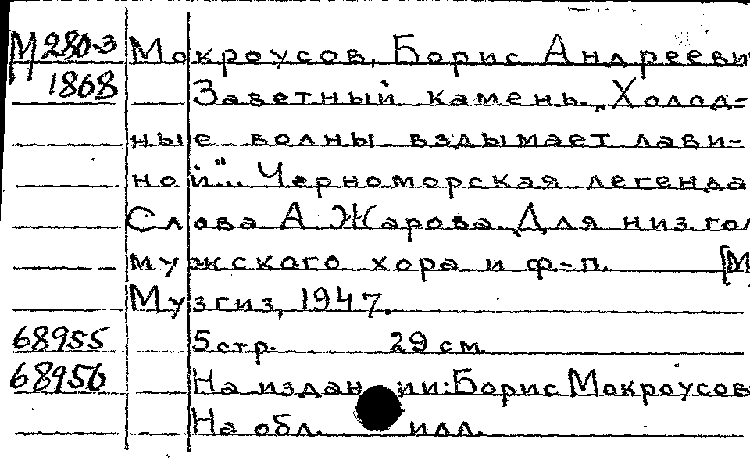 М 280-3 Мокроусов, Борис Андрееви
1868 Заветный камень. „Холод=
ные волны вздымает лави-
ной"... Черноморская легенда
Слова А Жарова. Для низ. гол
мужского хора и ф-п. [М
Музгиз, 1947.
68955 5 стр. 29 см
68956 На издании: Борис Мокроусов
На обл. илл.